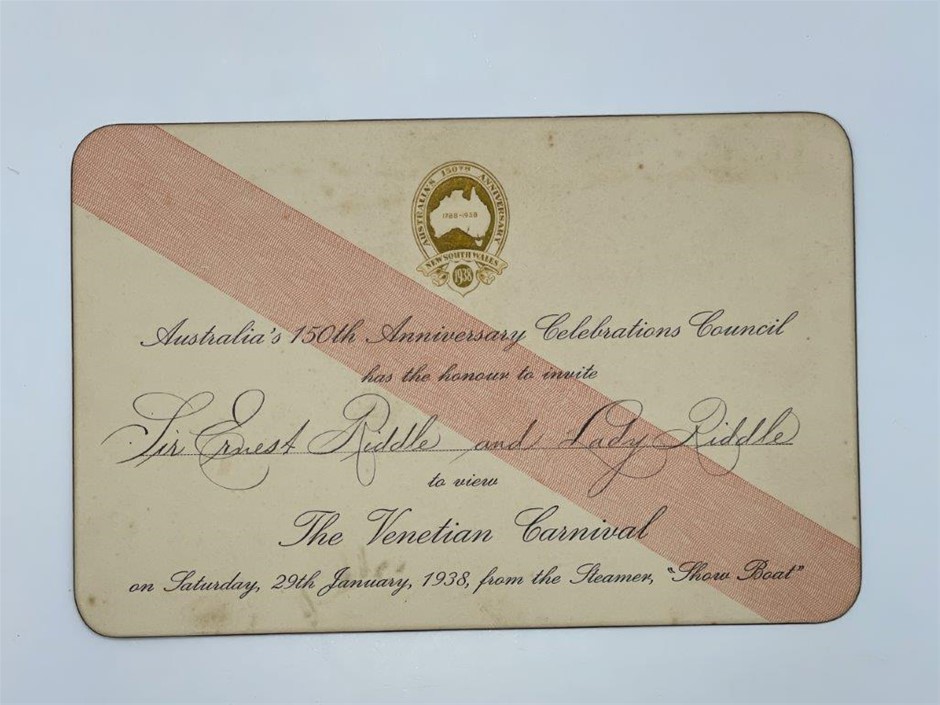 AUSTRALIA'S 150TH ANNIVERSARY
1788-1938
NEW SOUTH WALES
1938
Australia's 150th Anniversary Celebrations Council
has the honour to invite
Sir Ernest Riddle and Lady Riddle
to view
The Venetian Carnival
on Saturday, 29th January, 1938, from the Steamer, "Show Boat"